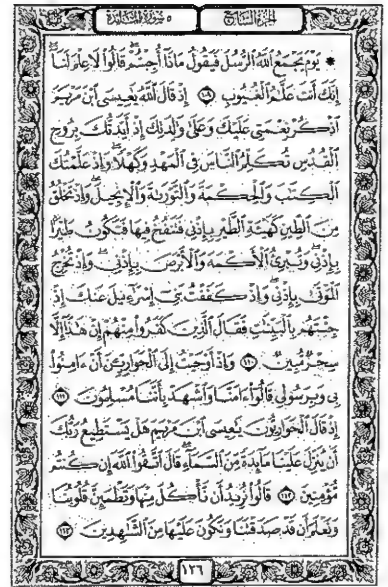 الجزء السابع ٥ سورة المائدة
* يَوْمَ يَجْمَعُ اللَّهُ الرُّسُلَ فَيَقُولُ مَاذَا أُجِبْتُمْ قَالُوا لَا عِلْمَ لَنَا
إِنَّكَ أَنتَ عَلَّامُ الْغُيُوبِ ١٠٩ إِذْ قَالَ اللَّهُ يَعِيسَى ابْنَ مَرْيَمَ
اذْكُرْ نِعْمَتِي عَلَيْكَ وَعَلَى وَالِدَتِكَ إِذْ أَيَّدتُّكَ بِرُوحِ
الْقُدُسِ تُكَلِّمُ النَّاسَ فِي الْمَهْدِ وَكَهْلًا وَإِذْ عَلَّمْتُكَ
الْكِتَبَ وَالْحِكْمَةَ وَالتَّوْرَىةَ وَالْإِنجِيلَ وَإِذْ تَخْلُقُ
مِنَ الطِّينِ كَهَيْئَةِ الطَّيْرِ بِإِذْنِي فَتَنفُخُ فِيهَا فَتَكُونُ طَيْرًا
بِإِذْنِي وَتُبْرِئُ الْأَكْمَهَ وَالْأَبْرَصَ بِإِذْنِي وَإِذْ تُخْرِجُ
الْمَوْتَى بِإِذْنِي وَإِذْ كَفَفْتُ بَنِي إِسْرَءِيلَ عَنكَ إِذْ
جِئْتَهُم بِالْبَيِّنَتِ فَقَالَ الَّذِينَ كَفَرُوا مِنْهُمْ إِنْ هَذَا إِلَّا
سِحْرٌ مُّبِينٌ ١١٠ وَإِذْ أَوْحَيْتُ إِلَى الْحَوَارِيِّنَ أَنْ ءَامِنُوا
بِي وَبِرَسُولِي قَالُوا ءَامَنَّا وَاشْهَدْ بِأَنَّنَا مُسْلِمُونَ ١١١
إِذْ قَالَ الْحَوَارِيُّونَ يَعِيسَى ابْنَ مَرْيَمَ هَلْ يَسْتَطِيعُ رَبُّكَ
أَن يُنَزِّلَ عَلَيْنَا مَائِدَةً مِّنَ السَّمَاءِ قَالَ اتَّقُوا اللَّهَ إِن كُنتُم
مُّؤْمِنِينَ ١١٢ قَالُوا نُرِيدُ أَن نَّأْكُلَ مِنْهَا وَتَطْمَئِنَّ قُلُوبُنَا
وَنَعْلَمَ أَن قَدْ صَدَقْتَنَا وَنَكُونَ عَلَيْهَا مِنَ الشَّهِدِينَ ١١٣
١٢٦